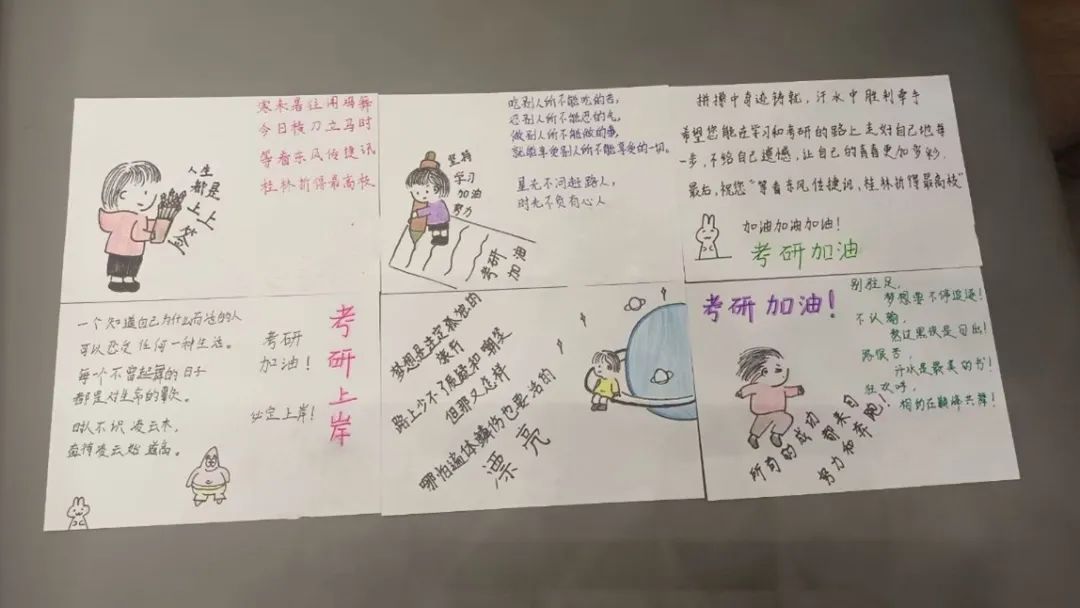 寒来暑往闻鸡舞
今日横刀立马时
等看东风传捷讯
桂林折得最高枝
人生
都是
上上
签
吃别人所不能吃的苦，
忍别人所不能忍的气，
做别人所不能做的事，
就能享受别人所不能享受的一切。
星光不问赶路人，
时光不负有心人
坚持
学习
加油
努力
考研
加油
拼搏中奇迹铸就，汗水中胜利牵手
希望您能在学习和考研的路上走好自己地每
一步，不给自己遗憾，让自己的青春更加多彩．
最后，祝您“等看东风传捷讯，桂林折得最高枝”
加油加油加油！
考研加油
一个知道自己为什么而活的人
可以忍受任何一种生活。
每一个不曾起舞的日子
都是对生命的辜负。
时人不识凌云木，
直待凌云始道高。
考研
加油！
必定上岸！
考研上岸
梦想是注定孤独的
旅行
路上少不了质疑和嘲笑
但那又怎样
哪怕遍体鳞伤也要活的
漂亮
考研加油！
别驻足，
梦想要不停追逐！
不认输，
熬过黑夜是日出！
路很苦，
汗水是最美的书！
狂欢呼，
相约在巅峰共舞！
所有的成功都来自
努力和奔跑！